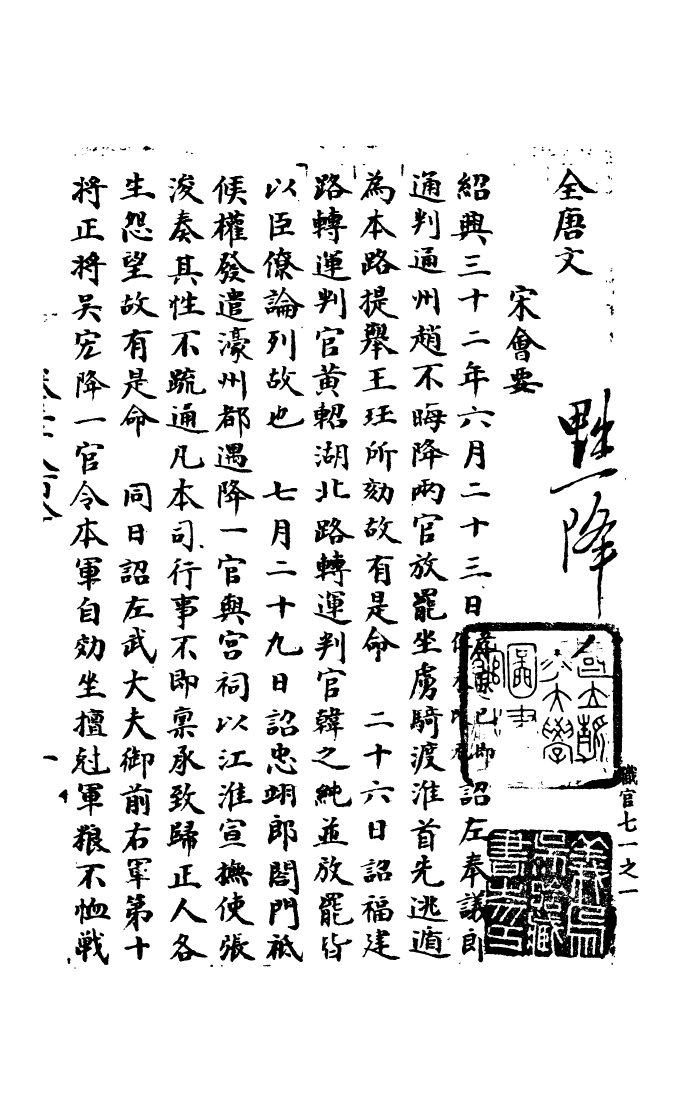 全唐文
宋會要
黜降
紹興三十二年六月二十三日即詔左奉議郎
通判通州趙不晦降兩官放罷坐虜騎渡淮首先逃遁
為本路提舉王珏所劾故有是命 二十六日詔福建
路轉運判官黃軺湖北路轉運判官韓之純並放罷皆
以臣僚論列故也 七月二十九日詔忠翊郎閤門祗
候權發遣濠州都遇降一官與宮祠以江淮宣撫使張
浚奏其性不疏通凡本司行事不即稟承致歸正人各
生怨望故有是命 同日詔左武大夫御前右軍第十
將正將吳宏降一官令本軍自効坐擅尅軍粮不恤戰
職官七一之一